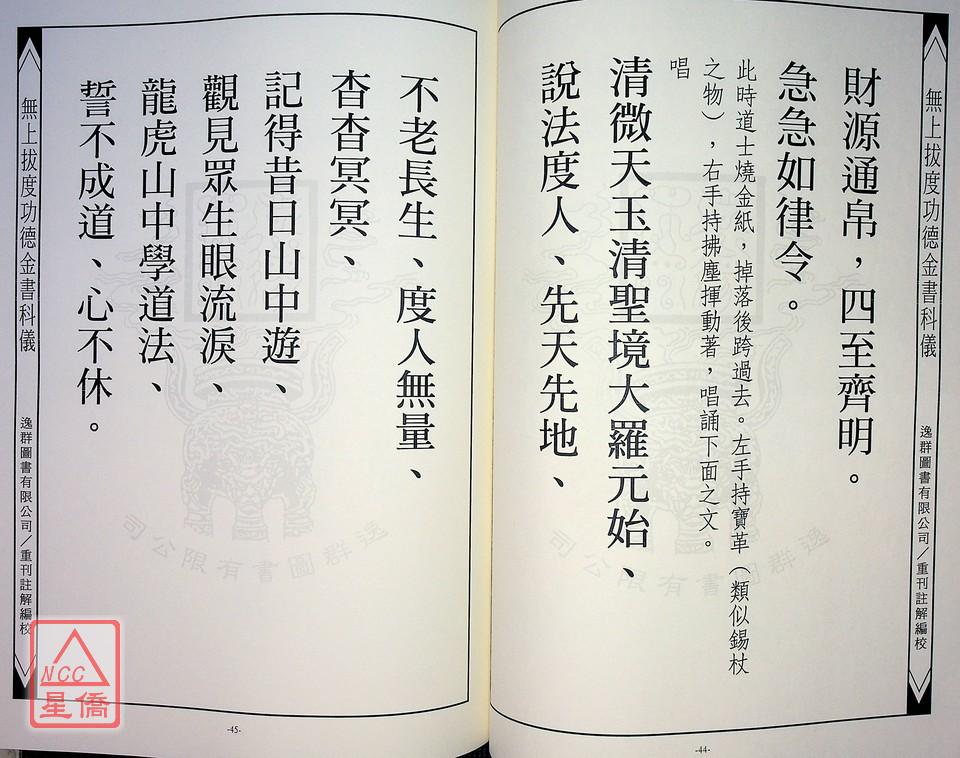 無上拔度功德金書科儀
逸群圖書有限公司／重刊註解編校
財源通帛，四至齊明。
急急如律令。
此時道士燒金紙，掉落後跨過去。左手持寶革（類似錫杖
之物），右手持拂塵揮動著，唱誦下面之文。
唱
清微天玉清聖境大羅元始、
說法度人、先天先地、
逸群圖書有限公司
-44-
不老長生、度人無量、
杳杳冥冥、
記得昔日山中遊、
觀見眾生眼流淚、
龍虎山中學道法、
誓不成道、心不休。
逸群圖書有限公司
無上拔度功德金書科儀
逸群圖書有限公司／重刊註解編校
-45-
NCC
星僑